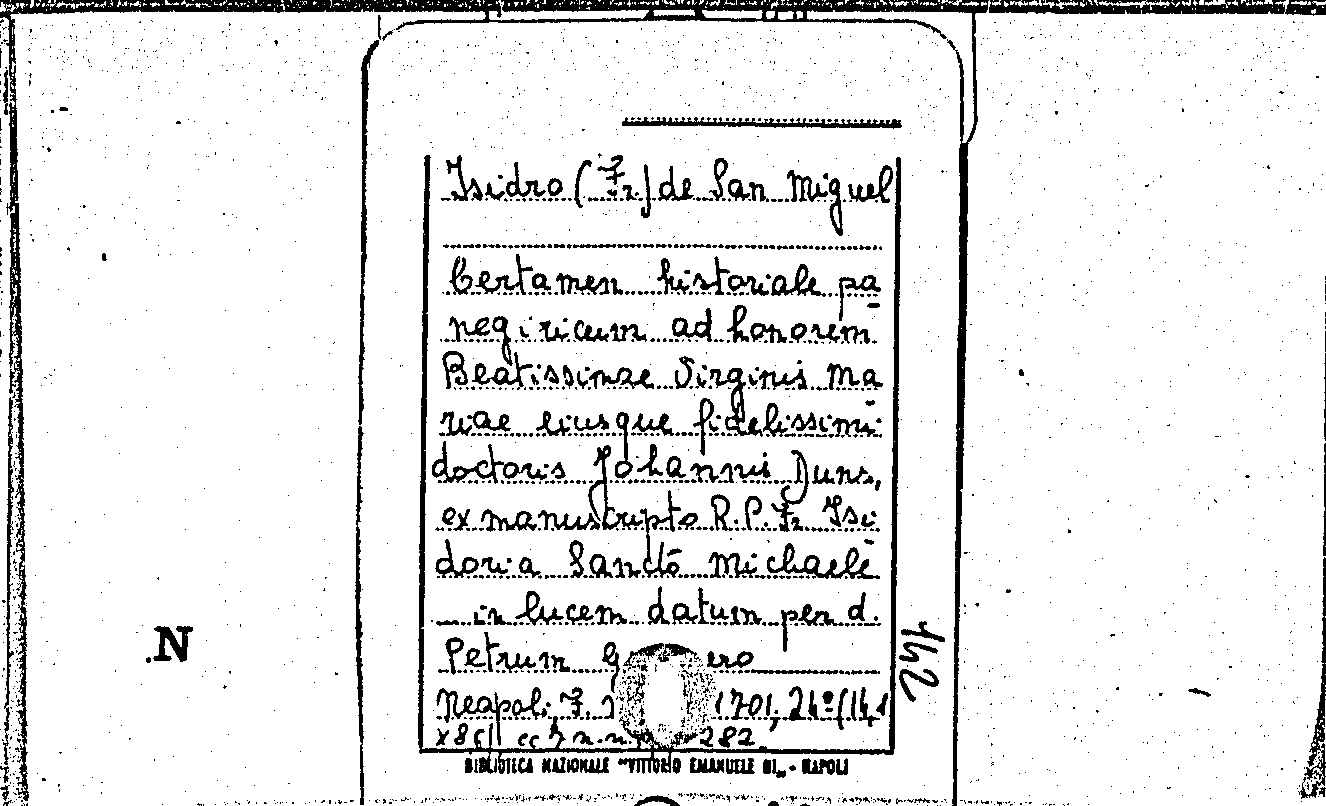 Isidro (Fr.) de San Miguel
Certamen historiale pa
negiricum ad honorem
Beatissimae Virginis Ma
riae eiusque fidelissimi
doctoris Johannis Duns,
ex manuscripto R.P. Fr. Isi
doria Sancto Michaele
... in lucem datum per d.
Petrum
Neapoli, F. 1701, 24º (14,1
x 8 282.
142
N
BIBLIOTECA NAZIONALE "VITTORIO EMANUELE III" - NAPOLI